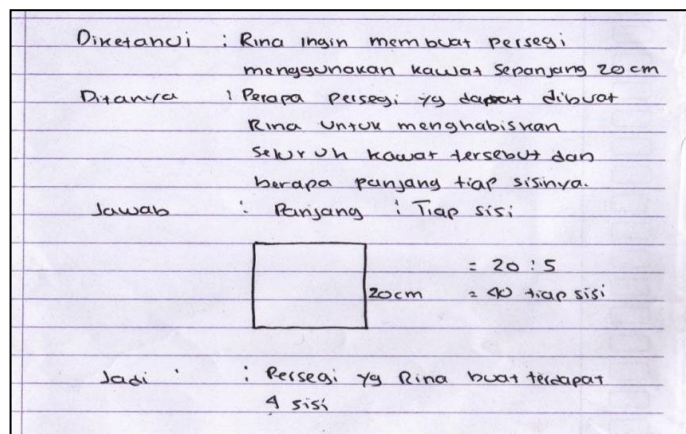 Diketahui : Rina ingin membuat persegi
menggunakan kawat sepanjang 20 cm
Ditanya : Berapa persegi yg dapat dibuat
Rina untuk menghabiskan
seluruh kawat tersebut dan
berapa panjang tiap sisinya.
Jawab : Panjang : Tiap sisi
= 20 : 5
20cm = 40 tiap sisi
Jadi : Persegi yg Rina buat terdapat
4 sisi